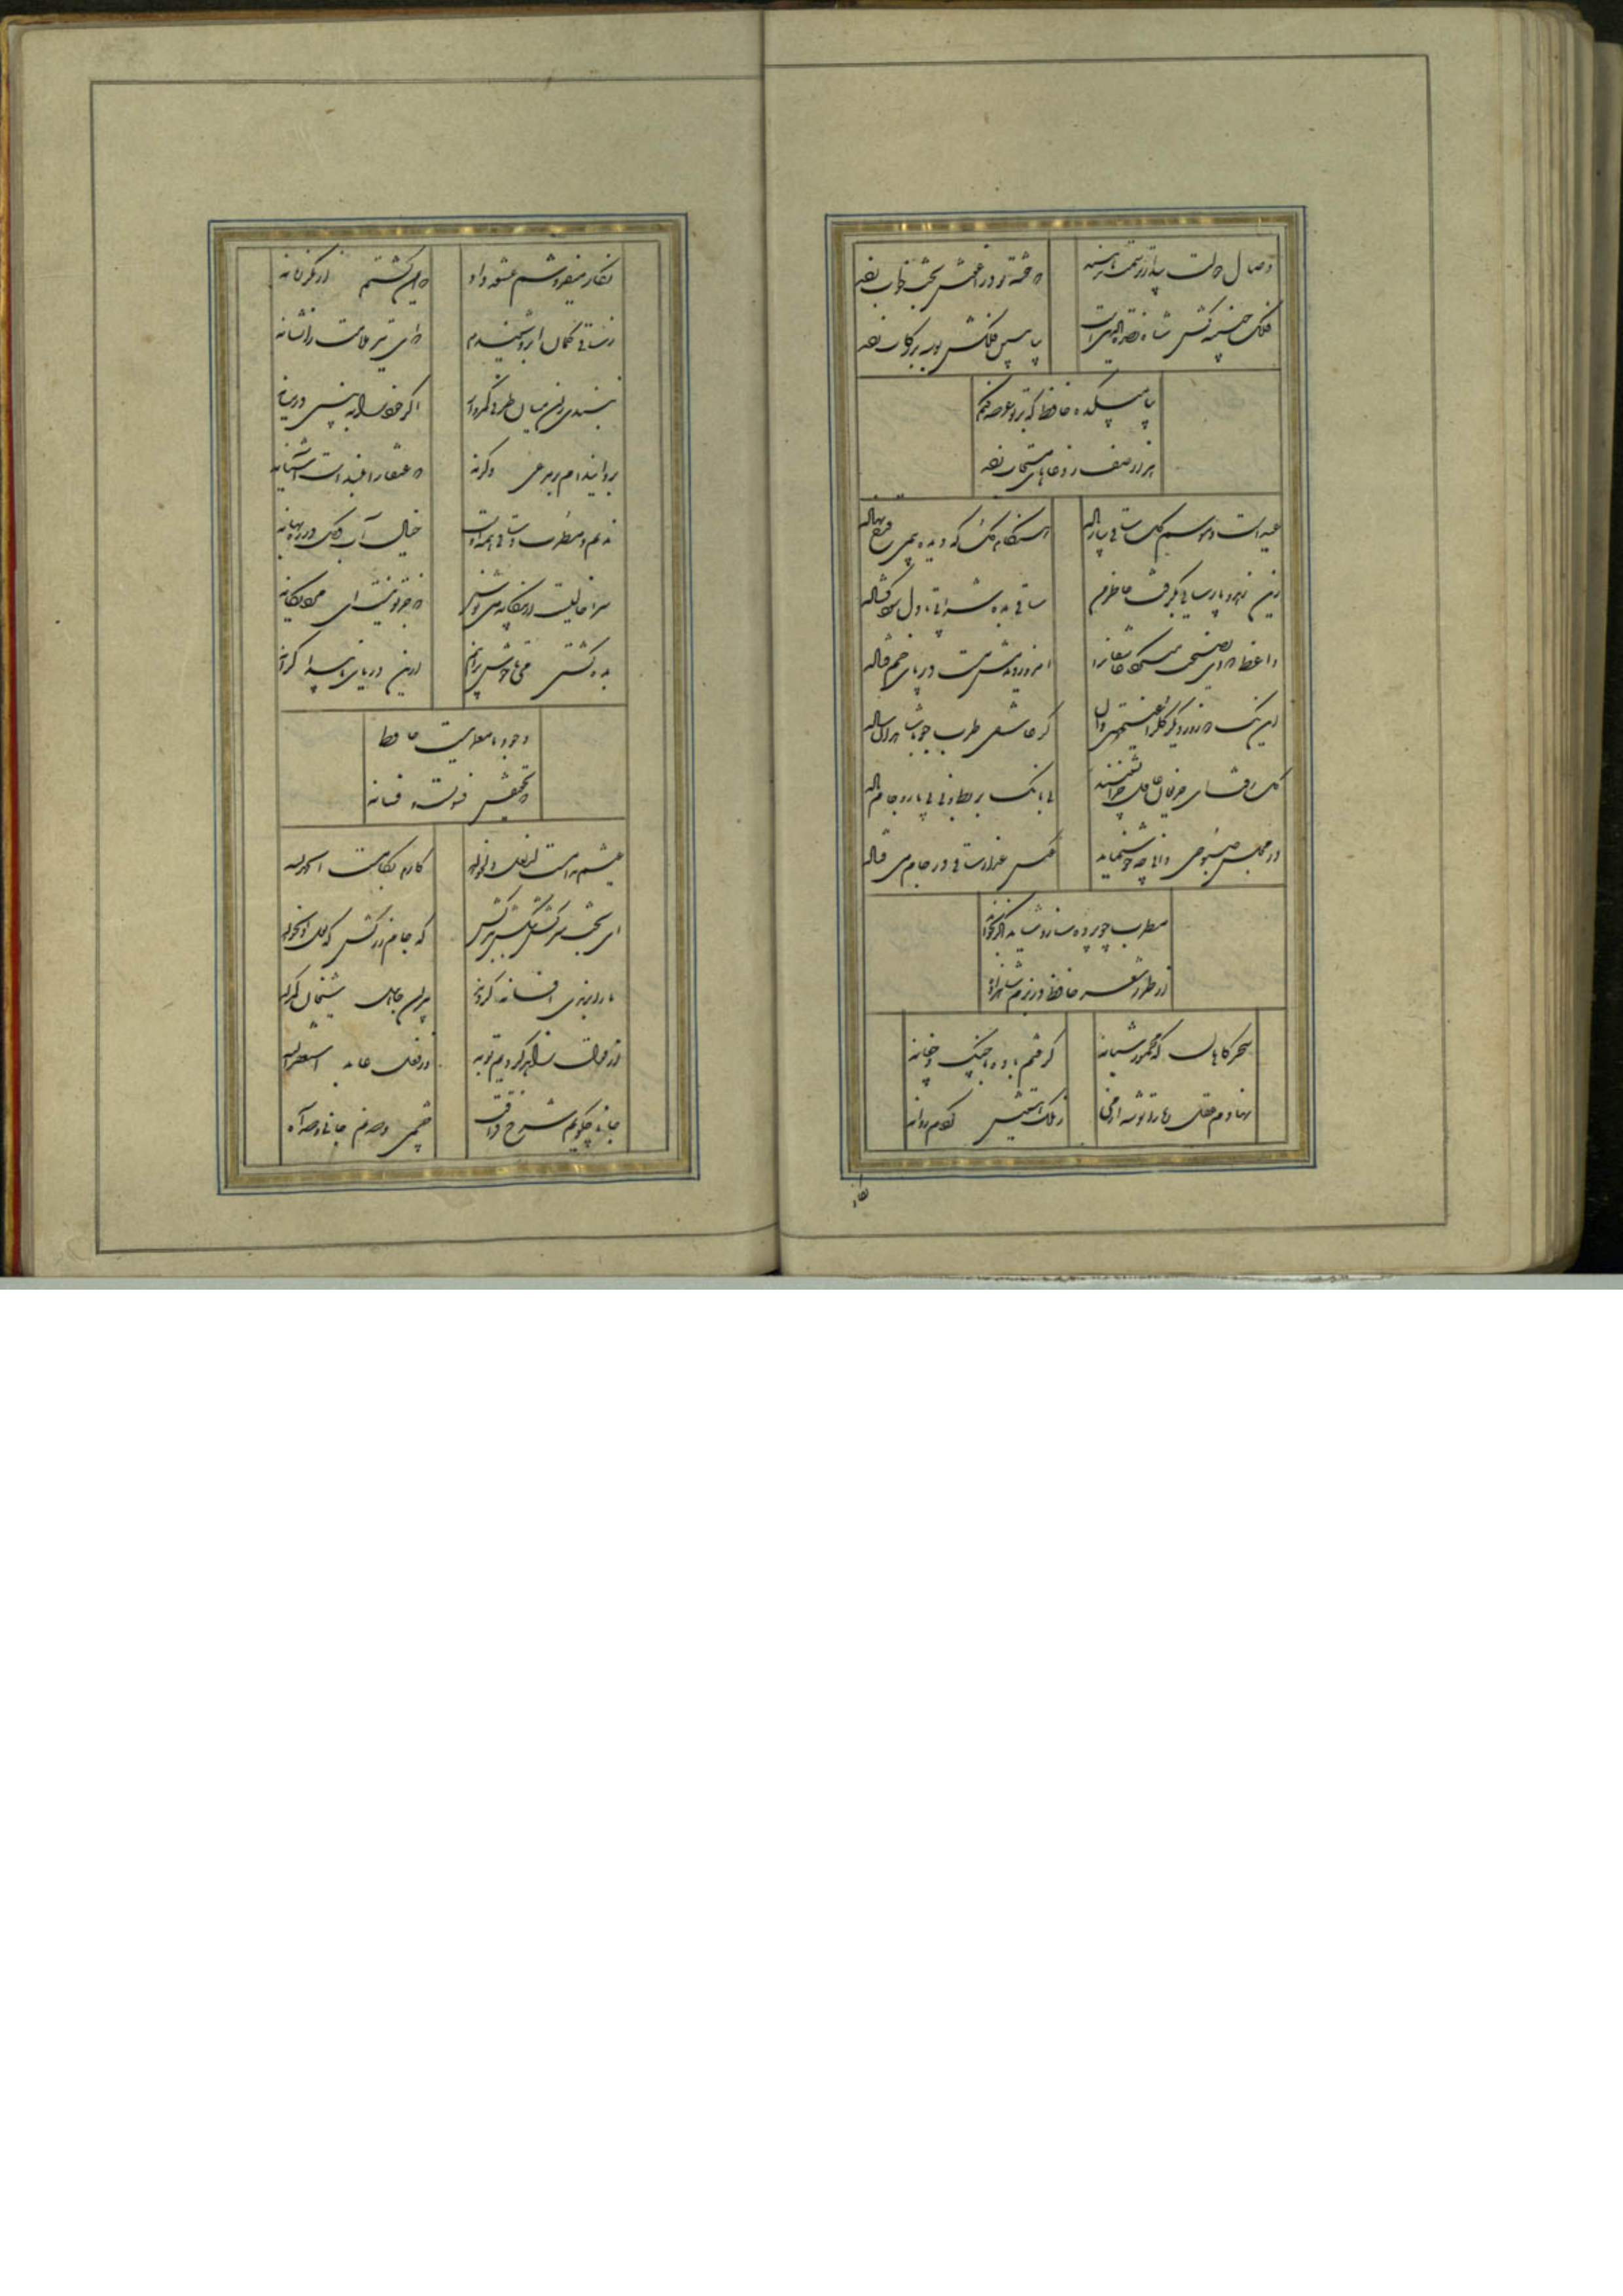 وصال دولت بیدار ترسمت ندهند
که خفته تو در آغوش بخت خواب زده
فلک جنیبه کش شاه نصره الدین است
بیا ببین ملکش دست در رکاب زده
بیا بمیکده حافظ که بر تو عرضه کنم
هزار صف ز دعاهای مستجاب زده
عید است و موسم گل ساقی بیار باده
هنگام گل که دیده بی می قدح نهاده
زین زهد و پارسایی بگرفت خاطر من
ساقی بده شرابی تا دل شود گشاده
واعظ که دی نصیحت میکرد عاشقانرا
امروز دیدمش مست در پای خم فتاده
این یک دو روز دیگر گل را غنیمتی دان
گر عاشقی طرب جو با شاهدان ساده
گل رفت ای حریفان غافل چرا نشینید
بی بانک بربط و نی بی یار و جام باده
در مجلس صبوحی دانی چه خوش نماید
عکس عذار ساقی در جام می فتاده
مطرب چو پرده سازد شاید اگر بخواند
از طرز شعر حافظ در بزم شاهزاده
سحرگاهان که مخمور شبانه
گرفتم باده با چنگ و چغانه
نهادم عقل را ره توشه از می
ز ملک هستیش کردم روانه
نگار میفروشم عشوه داد
که ایمن گشتم از مکر زمانه
ز ساقی کمان ابرو شنیدم
که ای تیر ملامت را نشانه
نبندی زان میان طرفی کمروار
اگر خود را به بینی در میانه
برو این دام بر مرغی دگر نه
که عنقا را بلند است آشیانه
ندیم و مطرب و ساقی همه اوست
خیال آب و گل در ره بهانه
سرا خالیست از بیگانه می نوش
که جز تو نیست ای مرد یگانه
بده کشتی می تا خوش برانیم
ازین دریای ناپیدا کرانه
وجود ما معمایست حافظ
که تحقیقش فسونست و فسانه
عیشم مدام است از لعل دلخواه
کارم بکام است الحمدلله
ای بخت سرکش تنگش ببر کش
گه جام زر کش گه لعل دلخواه
ما را برندی افسانه کردند
پیران جاهل شیخان گمراه
از قول زاهد کردیم توبه
وز فعل عابد استغفرالله
جانا چگویم شرح فراقت
چشمی و صد نم جانی و صد آه
نگار